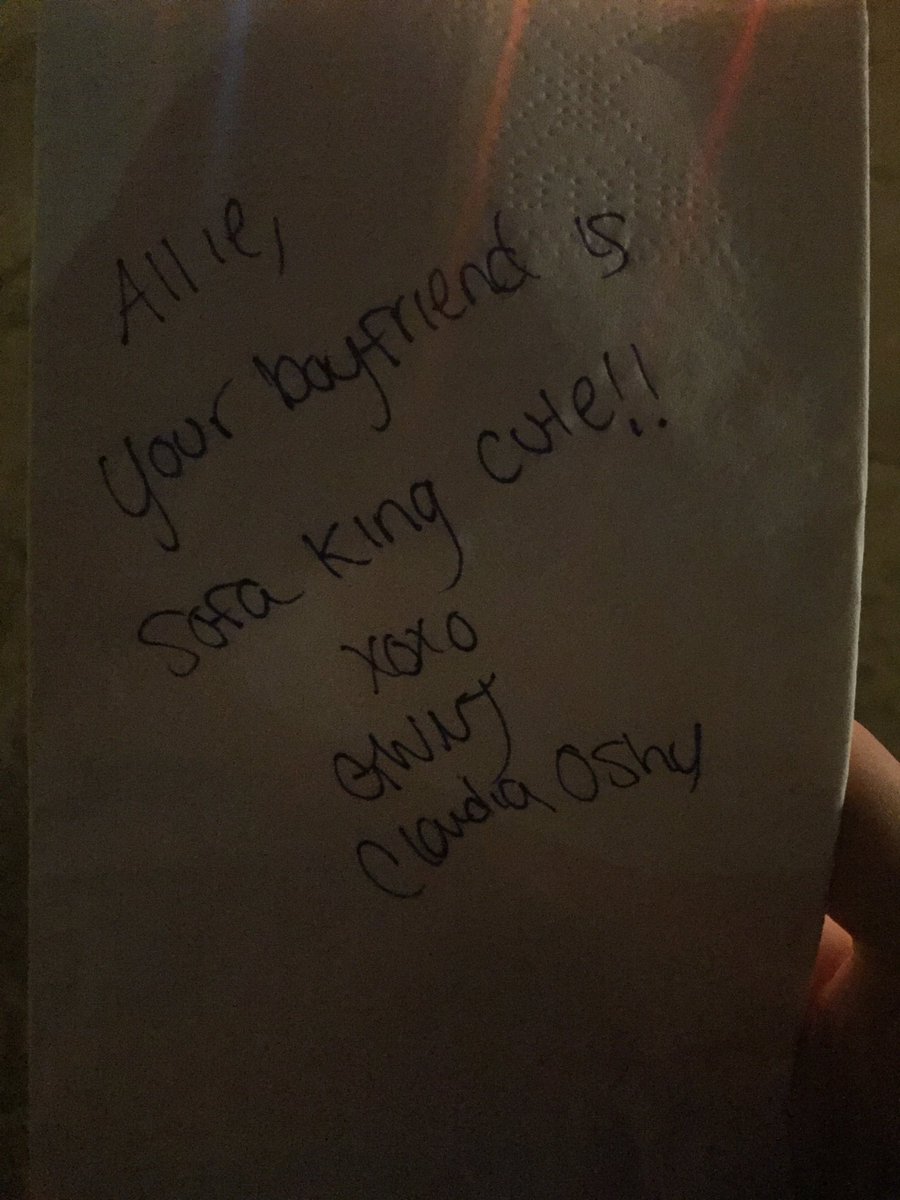 Allie,
Your boyfriend is
Sofa King cute!!
xoxo
Claudia Oshy